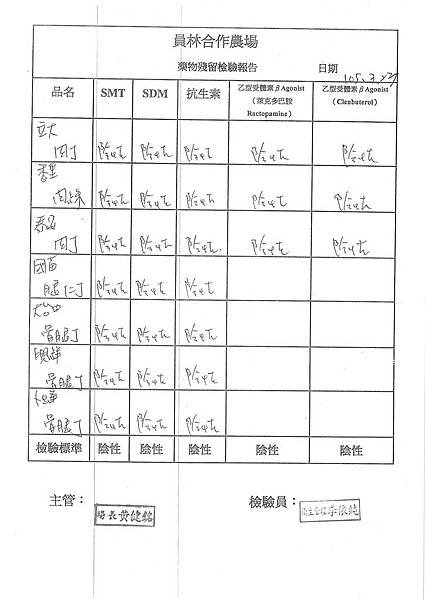 員林合作農場
藥物殘留檢驗報告
日期
105.3.27
品名 SMT SDM 抗生素 乙型受體素βAgonist（萊克多巴胺 Ractopamine） 乙型受體素βAgonist（Clenbuterol）
立大
肉丁 陰性 陰性 陰性 陰性 陰性
陰性 陰性 陰性 陰性 陰性
肉丁 陰性 陰性 陰性 陰性 陰性
陰性 陰性 陰性
陰性 陰性 陰性
陰性 陰性 陰性
陰性 陰性 陰性
檢驗標準 陰性 陰性 陰性 陰性 陰性
主管：
場長黃健銘
檢驗員：
李依純